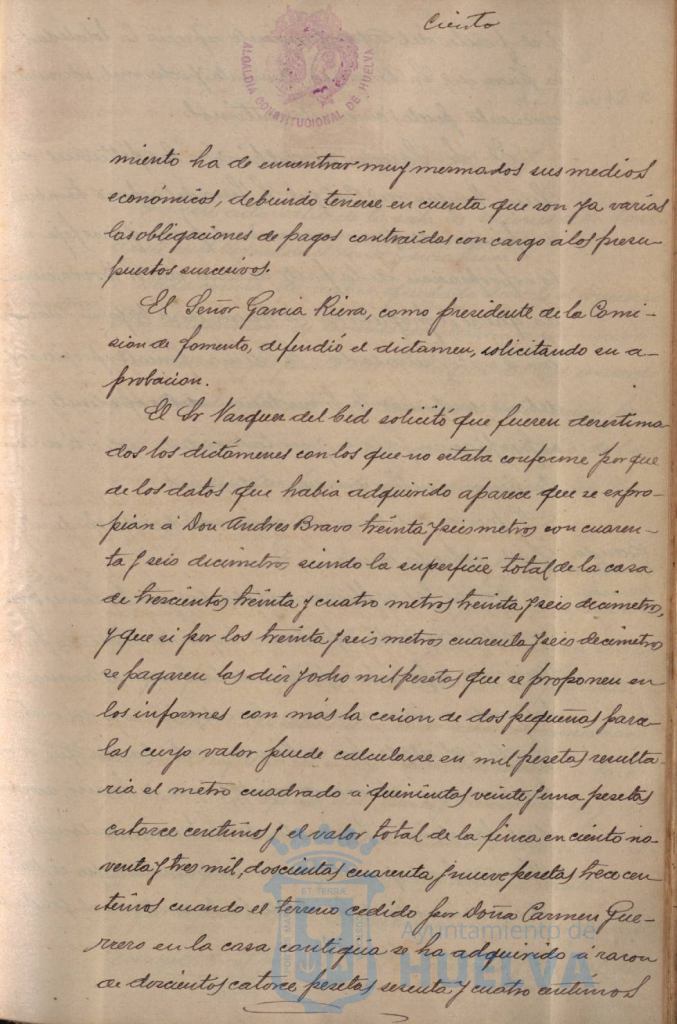 Ciento
ALCALDIA CONSTITUCIONAL DE HUELVA
miento ha de encontrar muy mermados sus medios
económicos, debiendo tenerse en cuenta que son ya varias
las obligaciones de pagos contraidas con cargo á los presu-
puestos sucesivos.
El Señor Garcia Riera, como presidente de la Comi-
sion de fomento, defendió el dictamen, solicitando su a-
probacion.
El Sr Vazquez del Cid solicitó que fueren desestima-
dos los dictámenes con los que no estaba conforme por que
de los datos que habia adquirido aparece que se expro-
pian á Don Andres Bravo treinta y seis metros con cuaren-
ta y seis decimetros siendo la superficie total de la casa
de trescientos treinta y cuatro metros treinta y seis decimetros,
y que si por los treinta y seis metros cuarenta y seis decimetros
se pagaren las diez y ocho mil pesetas que se proponen en
los informes con más la cesion de dos pequeñas parce-
las cuyo valor puede calcularse en mil pesetas resulta-
ria el metro cuadrado á quinientas veinte y una pesetas
catorce centimos y el valor total de la finca en ciento no-
venta y tres mil, doscientas cuarenta y nueve pesetas trece cen-
timos cuando el terreno cedido por Doña Carmen Gue-
rrero en la casa contigüa se ha adquirido á razon
de doscientos catorce pesetas sesenta y cuatro centimos
Ayuntamiento de
HUELVA